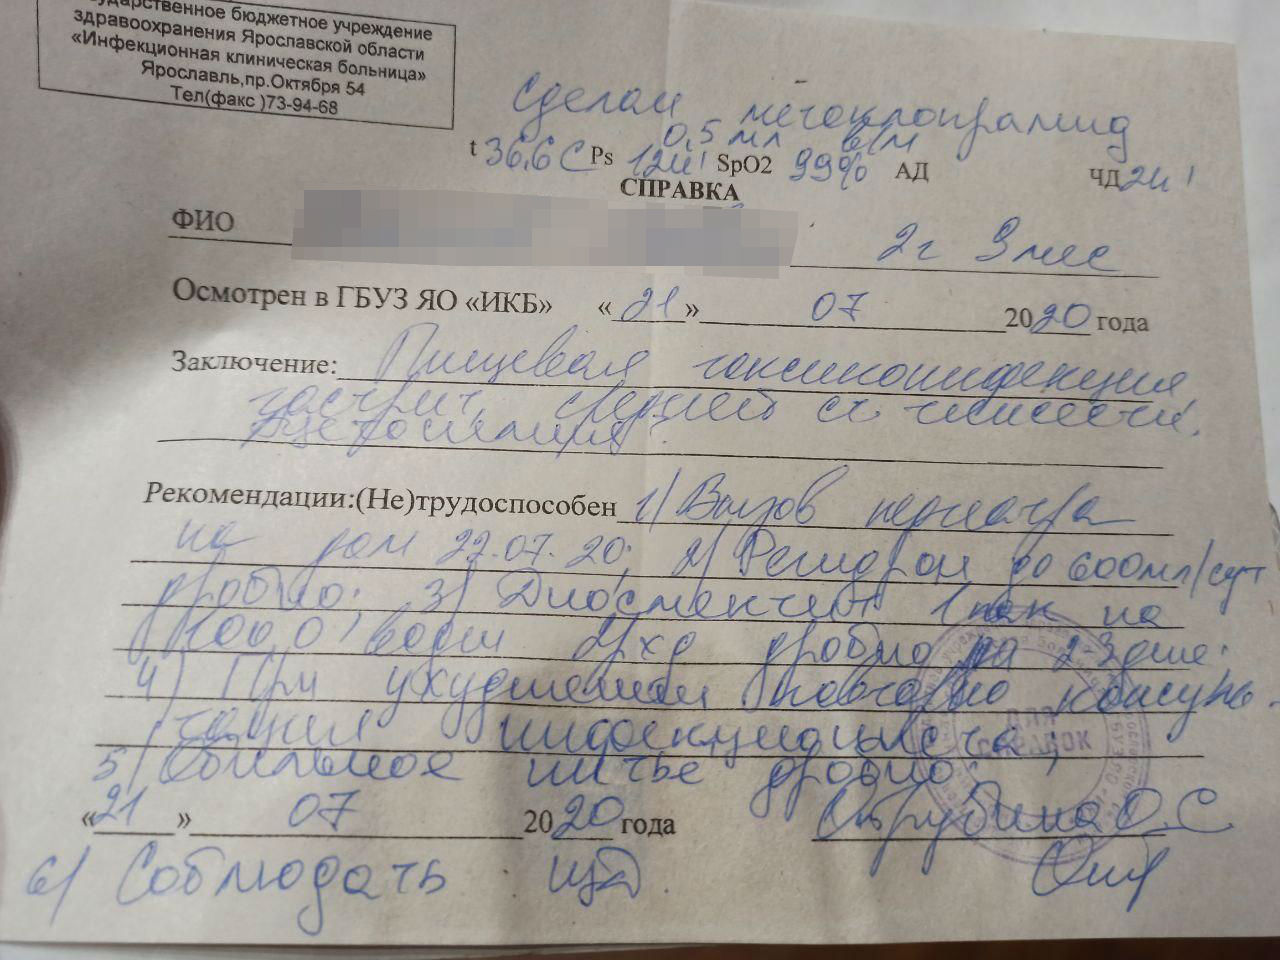 государственное бюджетное учреждение
здравоохранения Ярославской области
«Инфекционная клиническая больница»
Ярославль,пр.Октября 54
Тел(факс )73-94-68
Сделан метоклопрамид
0,5 мл в/м
t 36,6 С Ps 124' SpO2 99% АД ЧД 24'
СПРАВКА
ФИО 2г 9 мес
Осмотрен в ГБУЗ ЯО «ИКБ» «21» 07 2020 года
Заключение: Пищевая токсикоинфекция
гастрит, средней ст. тяжести.
Рекомендации:(Не)трудоспособен 1/ Вызов педиатра
на дом 22.07.20; 2/ Регидрон до 600мл/сут
дробно; 3/ Диосмектит 1 пак на
100,0 воды дробно 2-3 дня.
4/ При ухудшении повторно консуль-
тация инфекциониста;
5/ Обильное питье дробно.
ДЛЯ
СПРАВОК
«21» 07 2020 года О.С
6/ Соблюдать